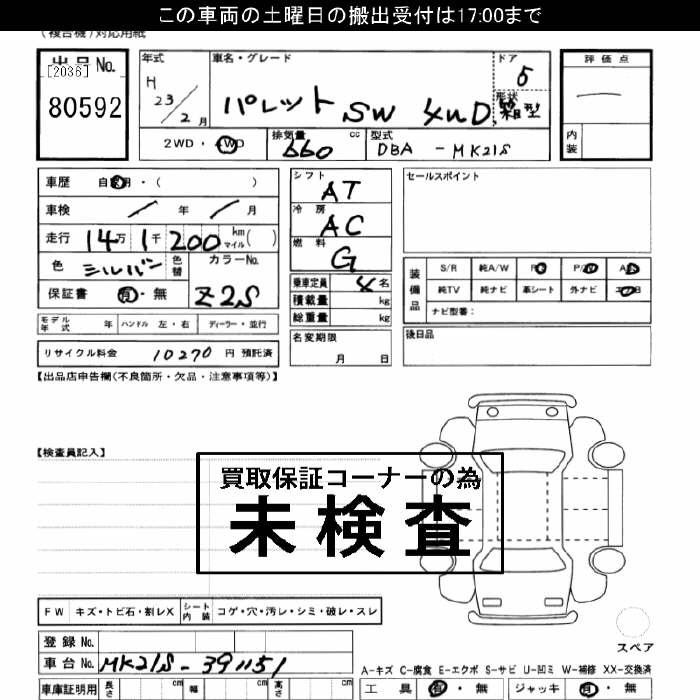 この車両の土曜日の搬出受付は17:00まで
(複合機)対応用紙
出品No.
[2036]
80592
年式
H 23/2月
車名・グレード
パレット SW 4WD
ドア
5
形状
箱型
評価点
内装
2WD・4WD
排気量
660
cc
型式
DBA - MK21S
車歴 自家用・( )
車検 年 月
走行 14万 1千 200 km マイル( )
色 シルバー 色替
カラーNo.
Z2S
保証書 有・無
シフト
AT
冷房
AC
燃料
G
乗車定員 4名
積載量 kg
総重量 kg
セールスポイント
装備品
S/R 純A/W
純TV 純ナビ 革シート 外ナビ
ナビ型番:
モデル年式 年 ハンドル 左・右 ディーラー・並行
名変期限
月 日
後日品
リサイクル料金 10270 円 預託済
【出品店申告欄(不良箇所・欠品・注意事項等)】
【検査員記入】
買取保証コーナーの為
未検査
FW キズ・トビ石・割レX シート内装 コゲ・穴・汚レ・シミ・破レ・スレ
スペア
登録No.
車台No. MK21S-391151
A-キズ C-腐食 E-エクボ S-サビ U-凹ミ W-補修 XX-交換済
車庫証明用 長さ cm 幅 cm 高さ cm
工具 有・無 ジャッキ 有・無